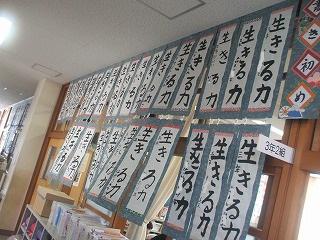 き初め
生きる力
生きる力
生きる力
生きる力
生きる力
生きる力
生きる力
生きる力
3年2組
生きる力
生きる力
生きる力
生きる力
生きる力
生きる力